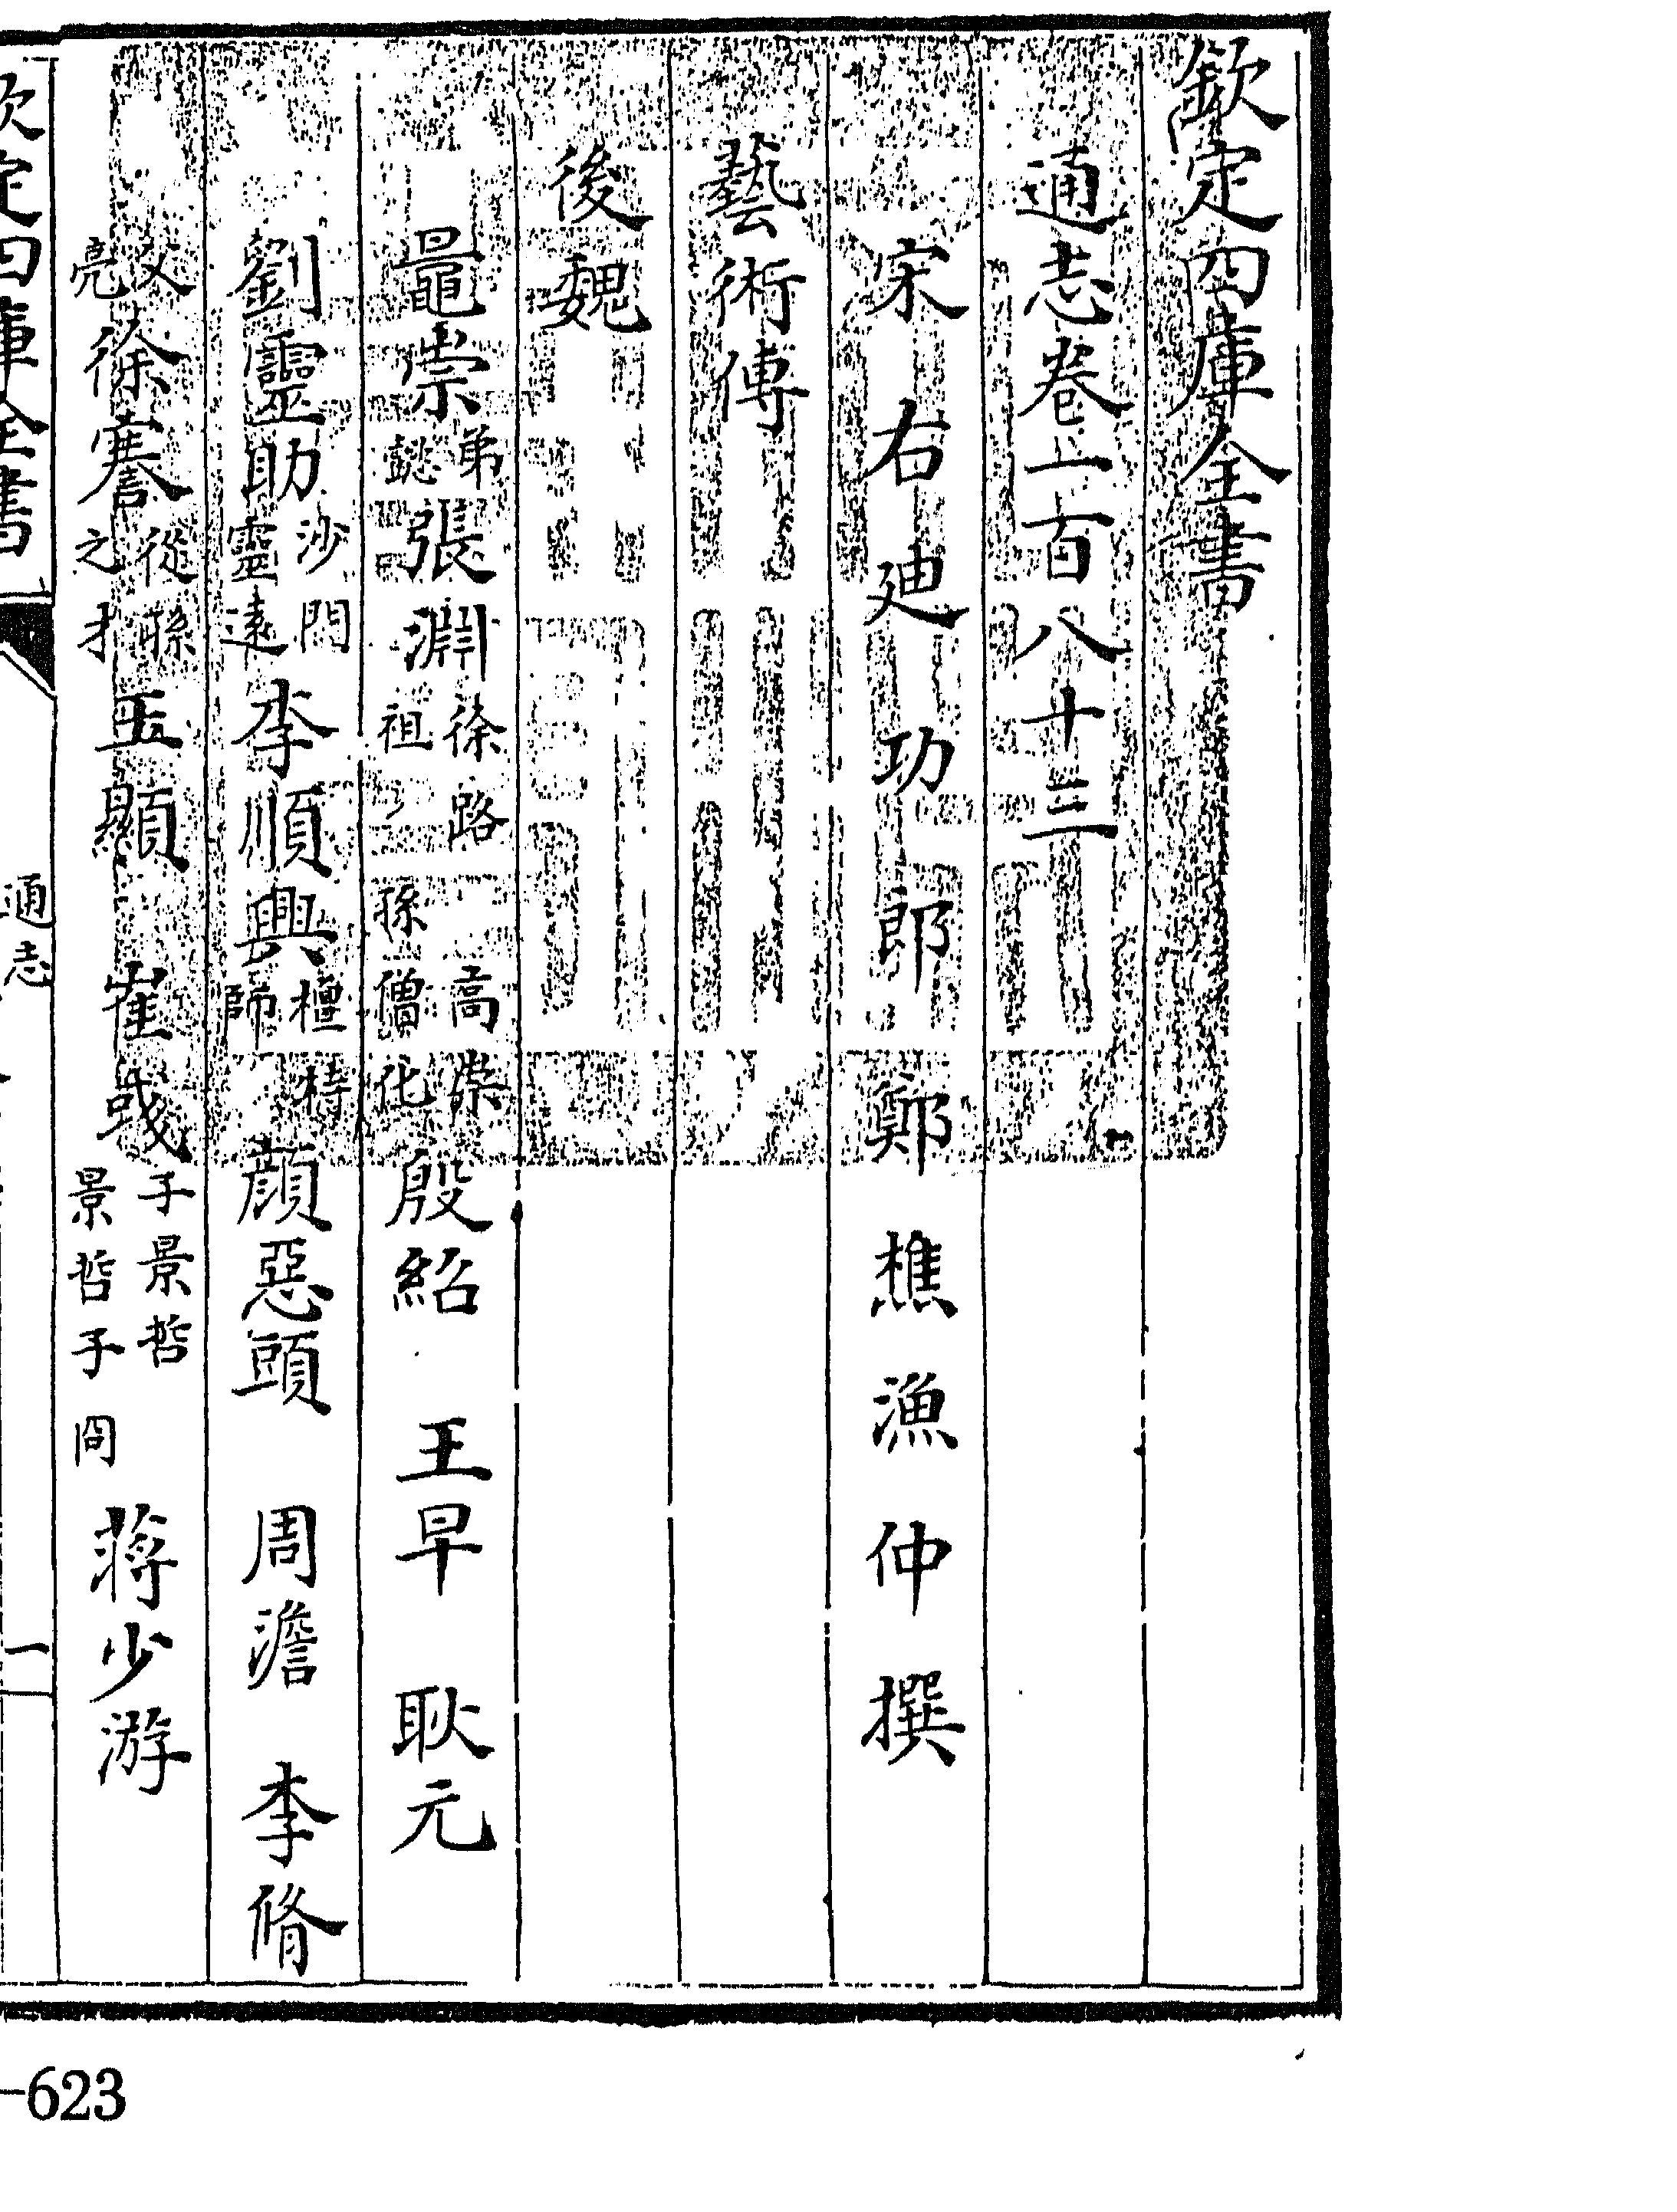 欽定四庫全書
通志卷一百八十三
宋右迪功郎鄭樵漁仲撰
藝術傳
後魏
鼂崇弟懿張淵徐路祖孫高崇僧化殷紹王早耿元
劉靈助沙門靈遠李順興檀特師顔惡頭周澹李脩
父亮徐謇從孫之才王顯崔彧子景哲景哲子冏蔣少游
欽定四庫全書
通志
一
-623